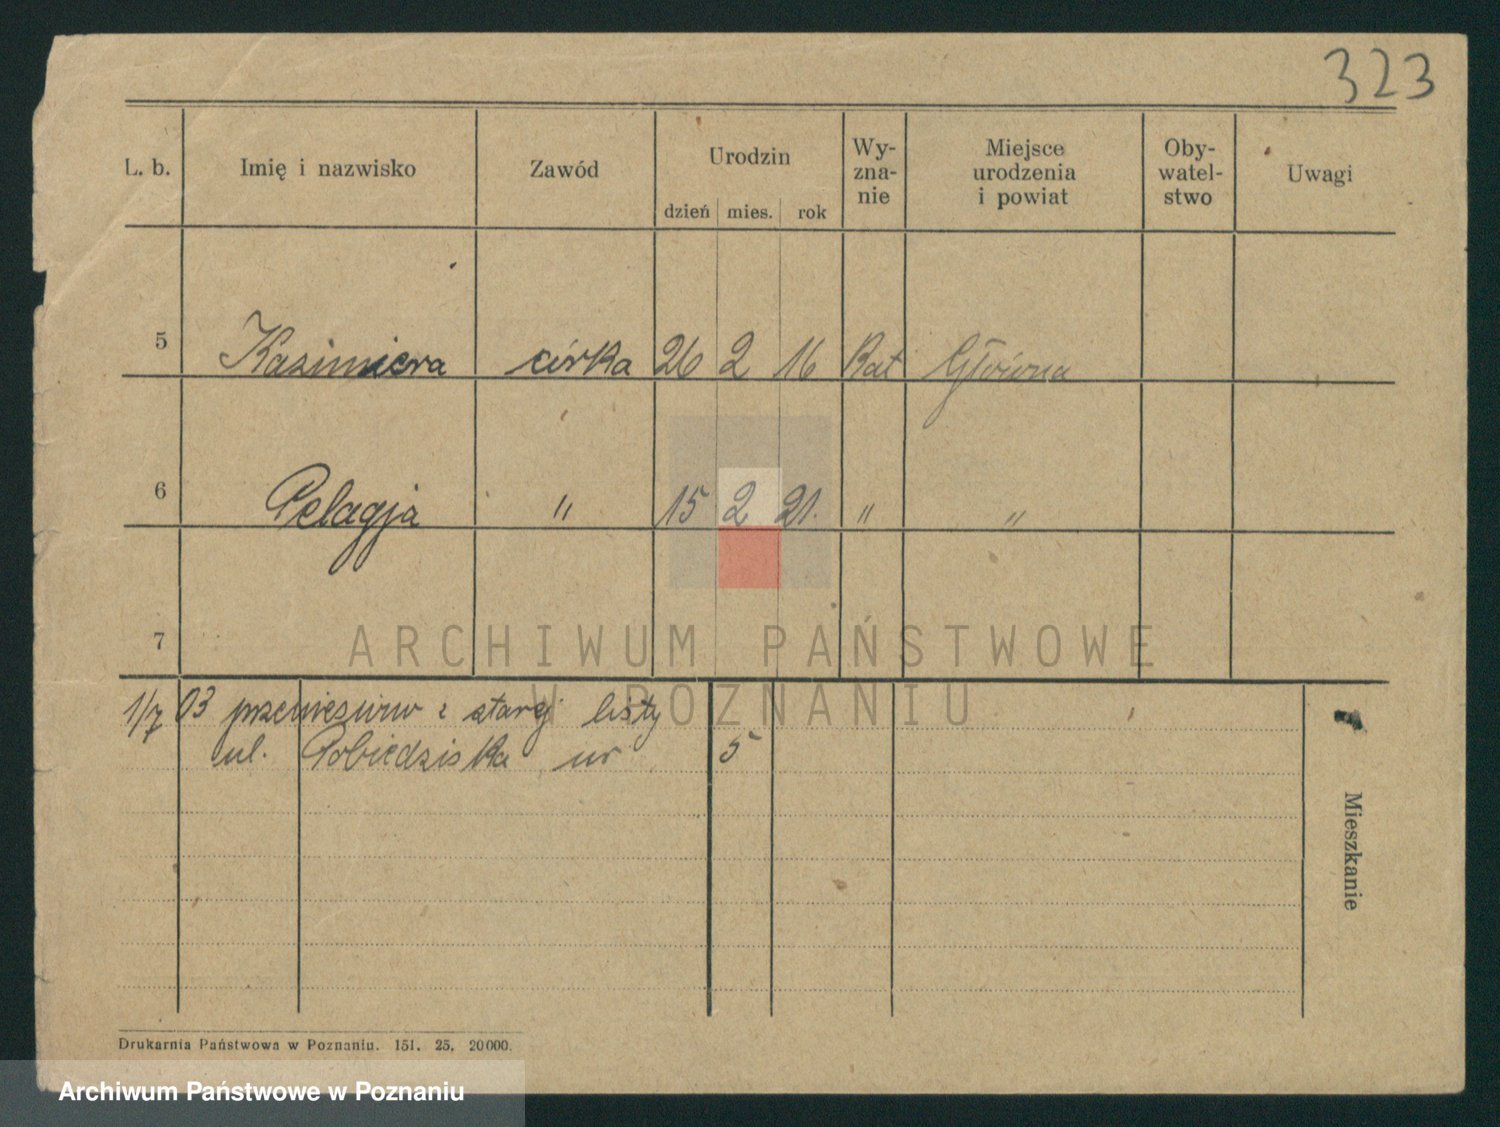 323
L. b. Imię i nazwisko Zawód Urodzin dzień mies. rok Wy-
zna-
nie Miejsce
urodzenia
i powiat Oby-
watel-
stwo Uwagi
5 Kazimiera córka 26 2 16 Kat Główna
6 Pelagja " 15 2 21. " "
7
1/7 03 przeniesiono z starej listy
ul. Pobiedziska nr 5
Mieszkanie
Drukarnia Państwowa w Poznaniu. 151. 25. 20000.
ARCHIWUM PAŃSTWOWE
W POZNANIU
Archiwum Państwowe w Poznaniu